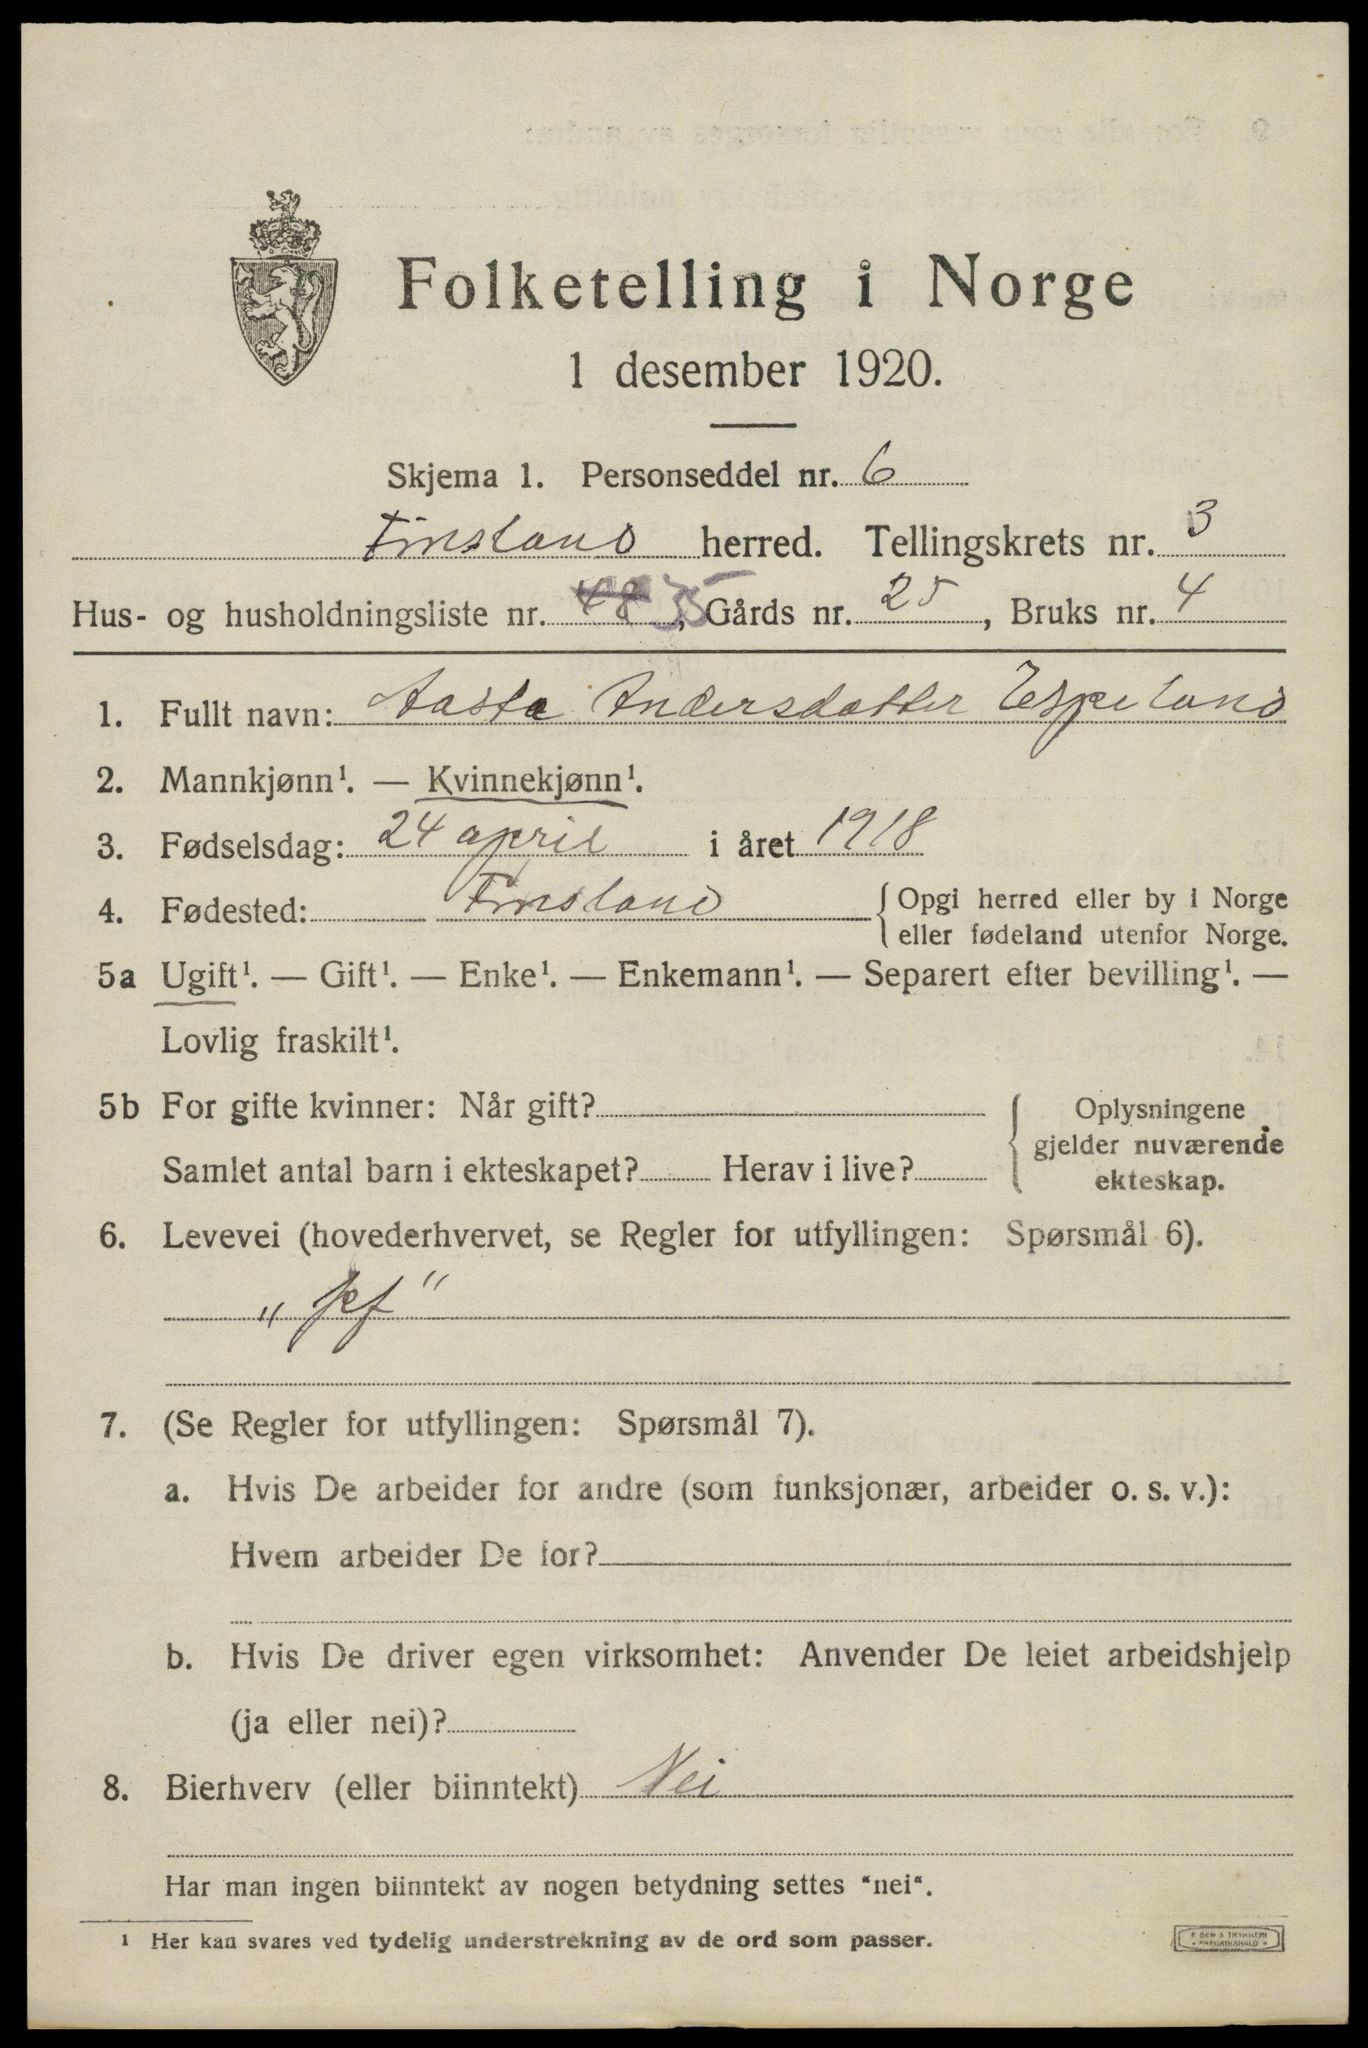 Folketelling i Norge
1 desember 1920.
Skjema 1. Personseddel nr. 6
Finsland herred. Tellingskrets nr. 3
Hus- og husholdningsliste nr. 48 35, Gårds nr. 25, Bruks nr. 4
1. Fullt navn: Aasta Andersdatter Espeland
2. Mannkjønn¹. — Kvinnekjønn¹.
3. Fødselsdag: 24 april i året 1918
4. Fødested: Finsland { Opgi herred eller by i Norge
eller fødeland utenfor Norge.
5a Ugift¹. — Gift¹. — Enke¹. — Enkemann¹. — Separert efter bevilling¹. —
Lovlig fraskilt¹.
5b For gifte kvinner: Når gift? { Oplysningene
gjelder nuværende
Samlet antal barn i ekteskapet? Herav i live? ekteskap.
6. Levevei (hovederhvervet, se Regler for utfyllingen: Spørsmål 6).
7. (Se Regler for utfyllingen: Spørsmål 7).
a. Hvis De arbeider for andre (som funksjonær, arbeider o. s. v.):
Hvem arbeider De for?
b. Hvis De driver egen virksomhet: Anvender De leiet arbeidshjelp
(ja eller nei)?
8. Bierhverv (eller biinntekt) Nei
Har man ingen biinntekt av nogen betydning settes "nei".
¹ Her kan svares ved tydelig understrekning av de ord som passer.